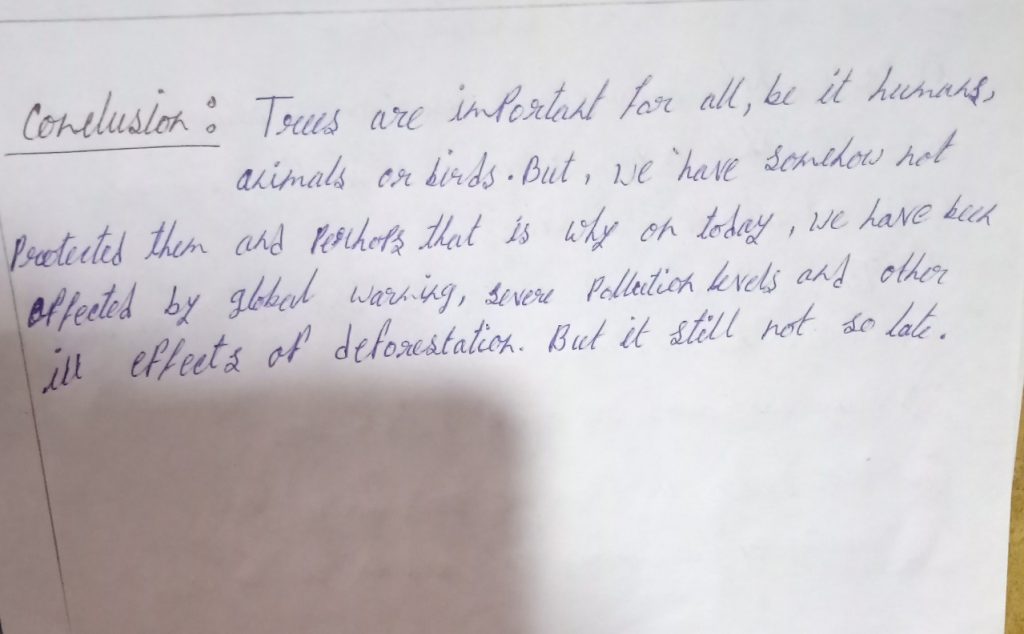 Conclusion: Trees are important for all, be it humans,
animals or birds. But, we have somehow not
Protected them and Perhaps that is why on today, we have been
affected by global warning, severe Pollution levels and other
ill effects of deforestation. But it still not so late.